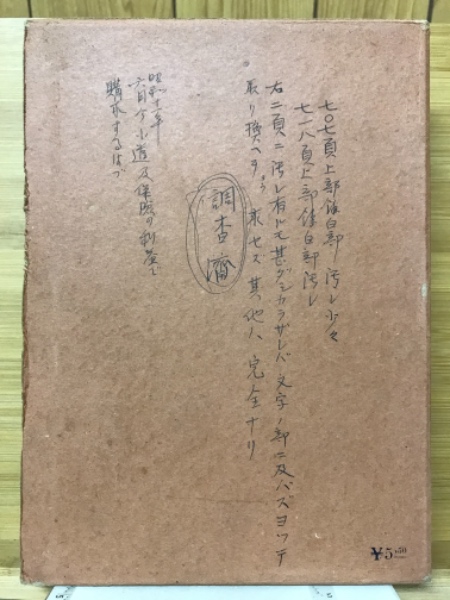 七〇七頁上部余白部汚レ少々
七一八頁上部余白部汚レ
右二頁ニ汚レ有ドモ甚ダシカラザレバ文字ノ部ニ及バズヨッテ
取リ換ヘヲ求セズ其他ハ完全ナリ
調査済
昭和十一年
六月
購求する
¥5.50